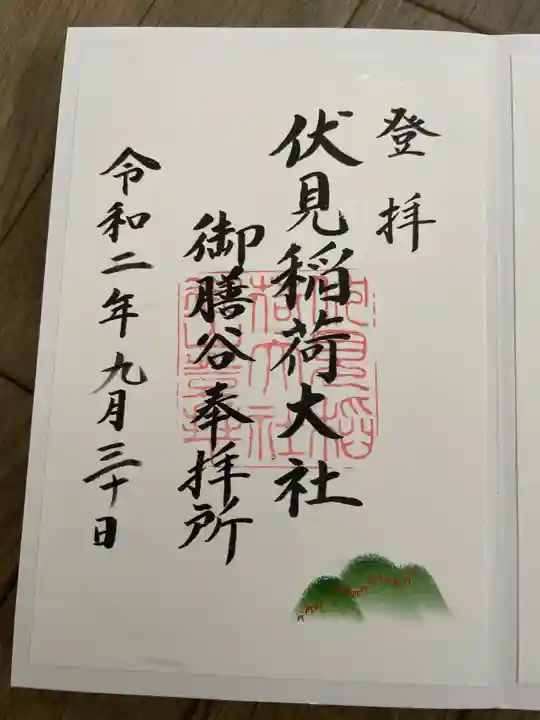 登拝
伏見稲荷大社
御膳谷奉拝所
令和二年九月三十日